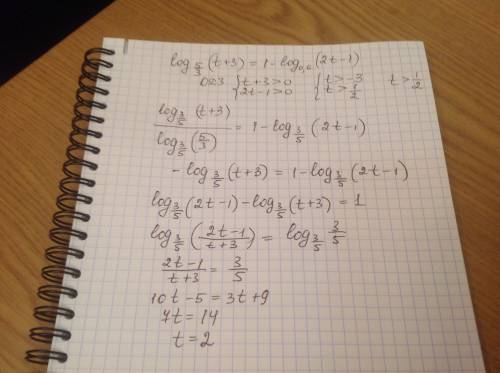 log_{5/3} (t+3) = 1 - log_{0,6} (2t-1)
ОДЗ { t+3>0 { t>-3 t > 1/2
{ 2t-1>0 { t> 1/2
log_{3/5} (t+3) / log_{3/5} (5/3) = 1 - log_{3/5} (2t-1)
- log_{3/5} (t+3) = 1 - log_{3/5} (2t-1)
log_{3/5} (2t-1) - log_{3/5} (t+3) = 1
log_{3/5} ( (2t-1) / (t+3) ) = log_{3/5} 3/5
(2t-1) / (t+3) = 3/5
10t - 5 = 3t + 9
7t = 14
t = 2